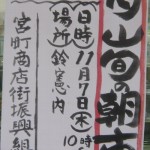 山旬の朝市
日時 11月7日(木) 10時
場所 鈴憲内
宮町商店街振興組